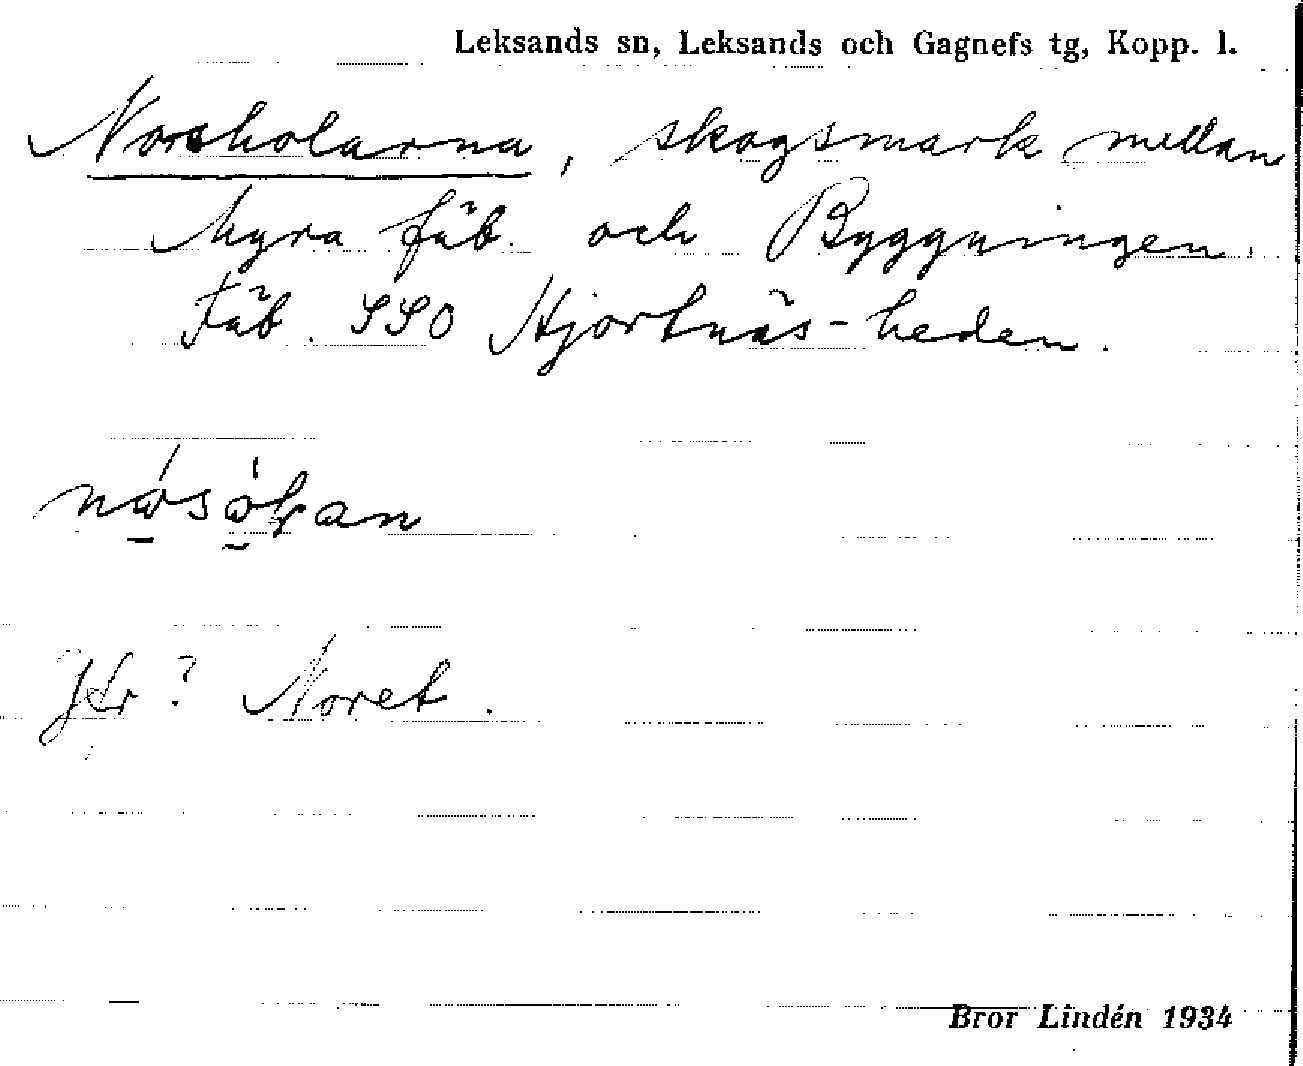 Leksands sn, Leksands och Gagnefs tg, Kopp. l.
Norsholarna, skogsmark mellan
Myra fäb. och Byggningen.
Fäb. SSO Hjortnäs-heden.
Jfr? Noret.
Bror Lindén 1934